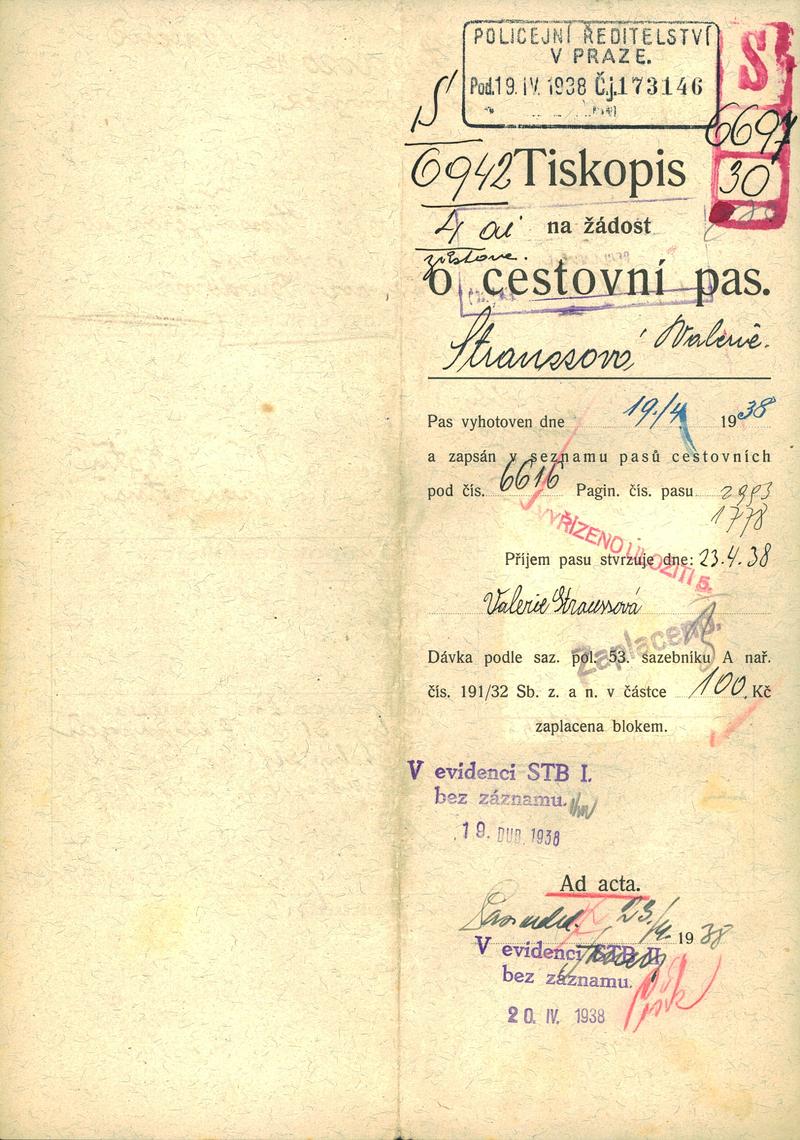 POLICEJNÍ ŘEDITELSTVÍ
V PRAZE.
Pod. 19. IV. 1938 Č.j. 173146
S
S
6697
30
6942
Tiskopis
4 ai
na žádost
zástave.
o cestovní pas.
Straussová Valerie.
Pas vyhotoven dne 19./4. 1938
a zapsán v seznamu pasů cestovních
pod čís. 6616 Pagin. čís. pasu 2993
1778
VYŘÍZENO ULOŽITI 5.
Příjem pasu stvrzuje dne: 23.4.38
Valerie Straussová
Zaplaceno.
Dávka podle saz. pol. 53. sazebníku A nař.
čís. 191/32 Sb. z. a n. v částce 100, Kč
zaplacena blokem.
V evidenci STB I.
bez záznamu.
19. DUB. 1938
Ad acta.
23/4. 1938
V evidenci STB II.
bez záznamu.
20. IV. 1938